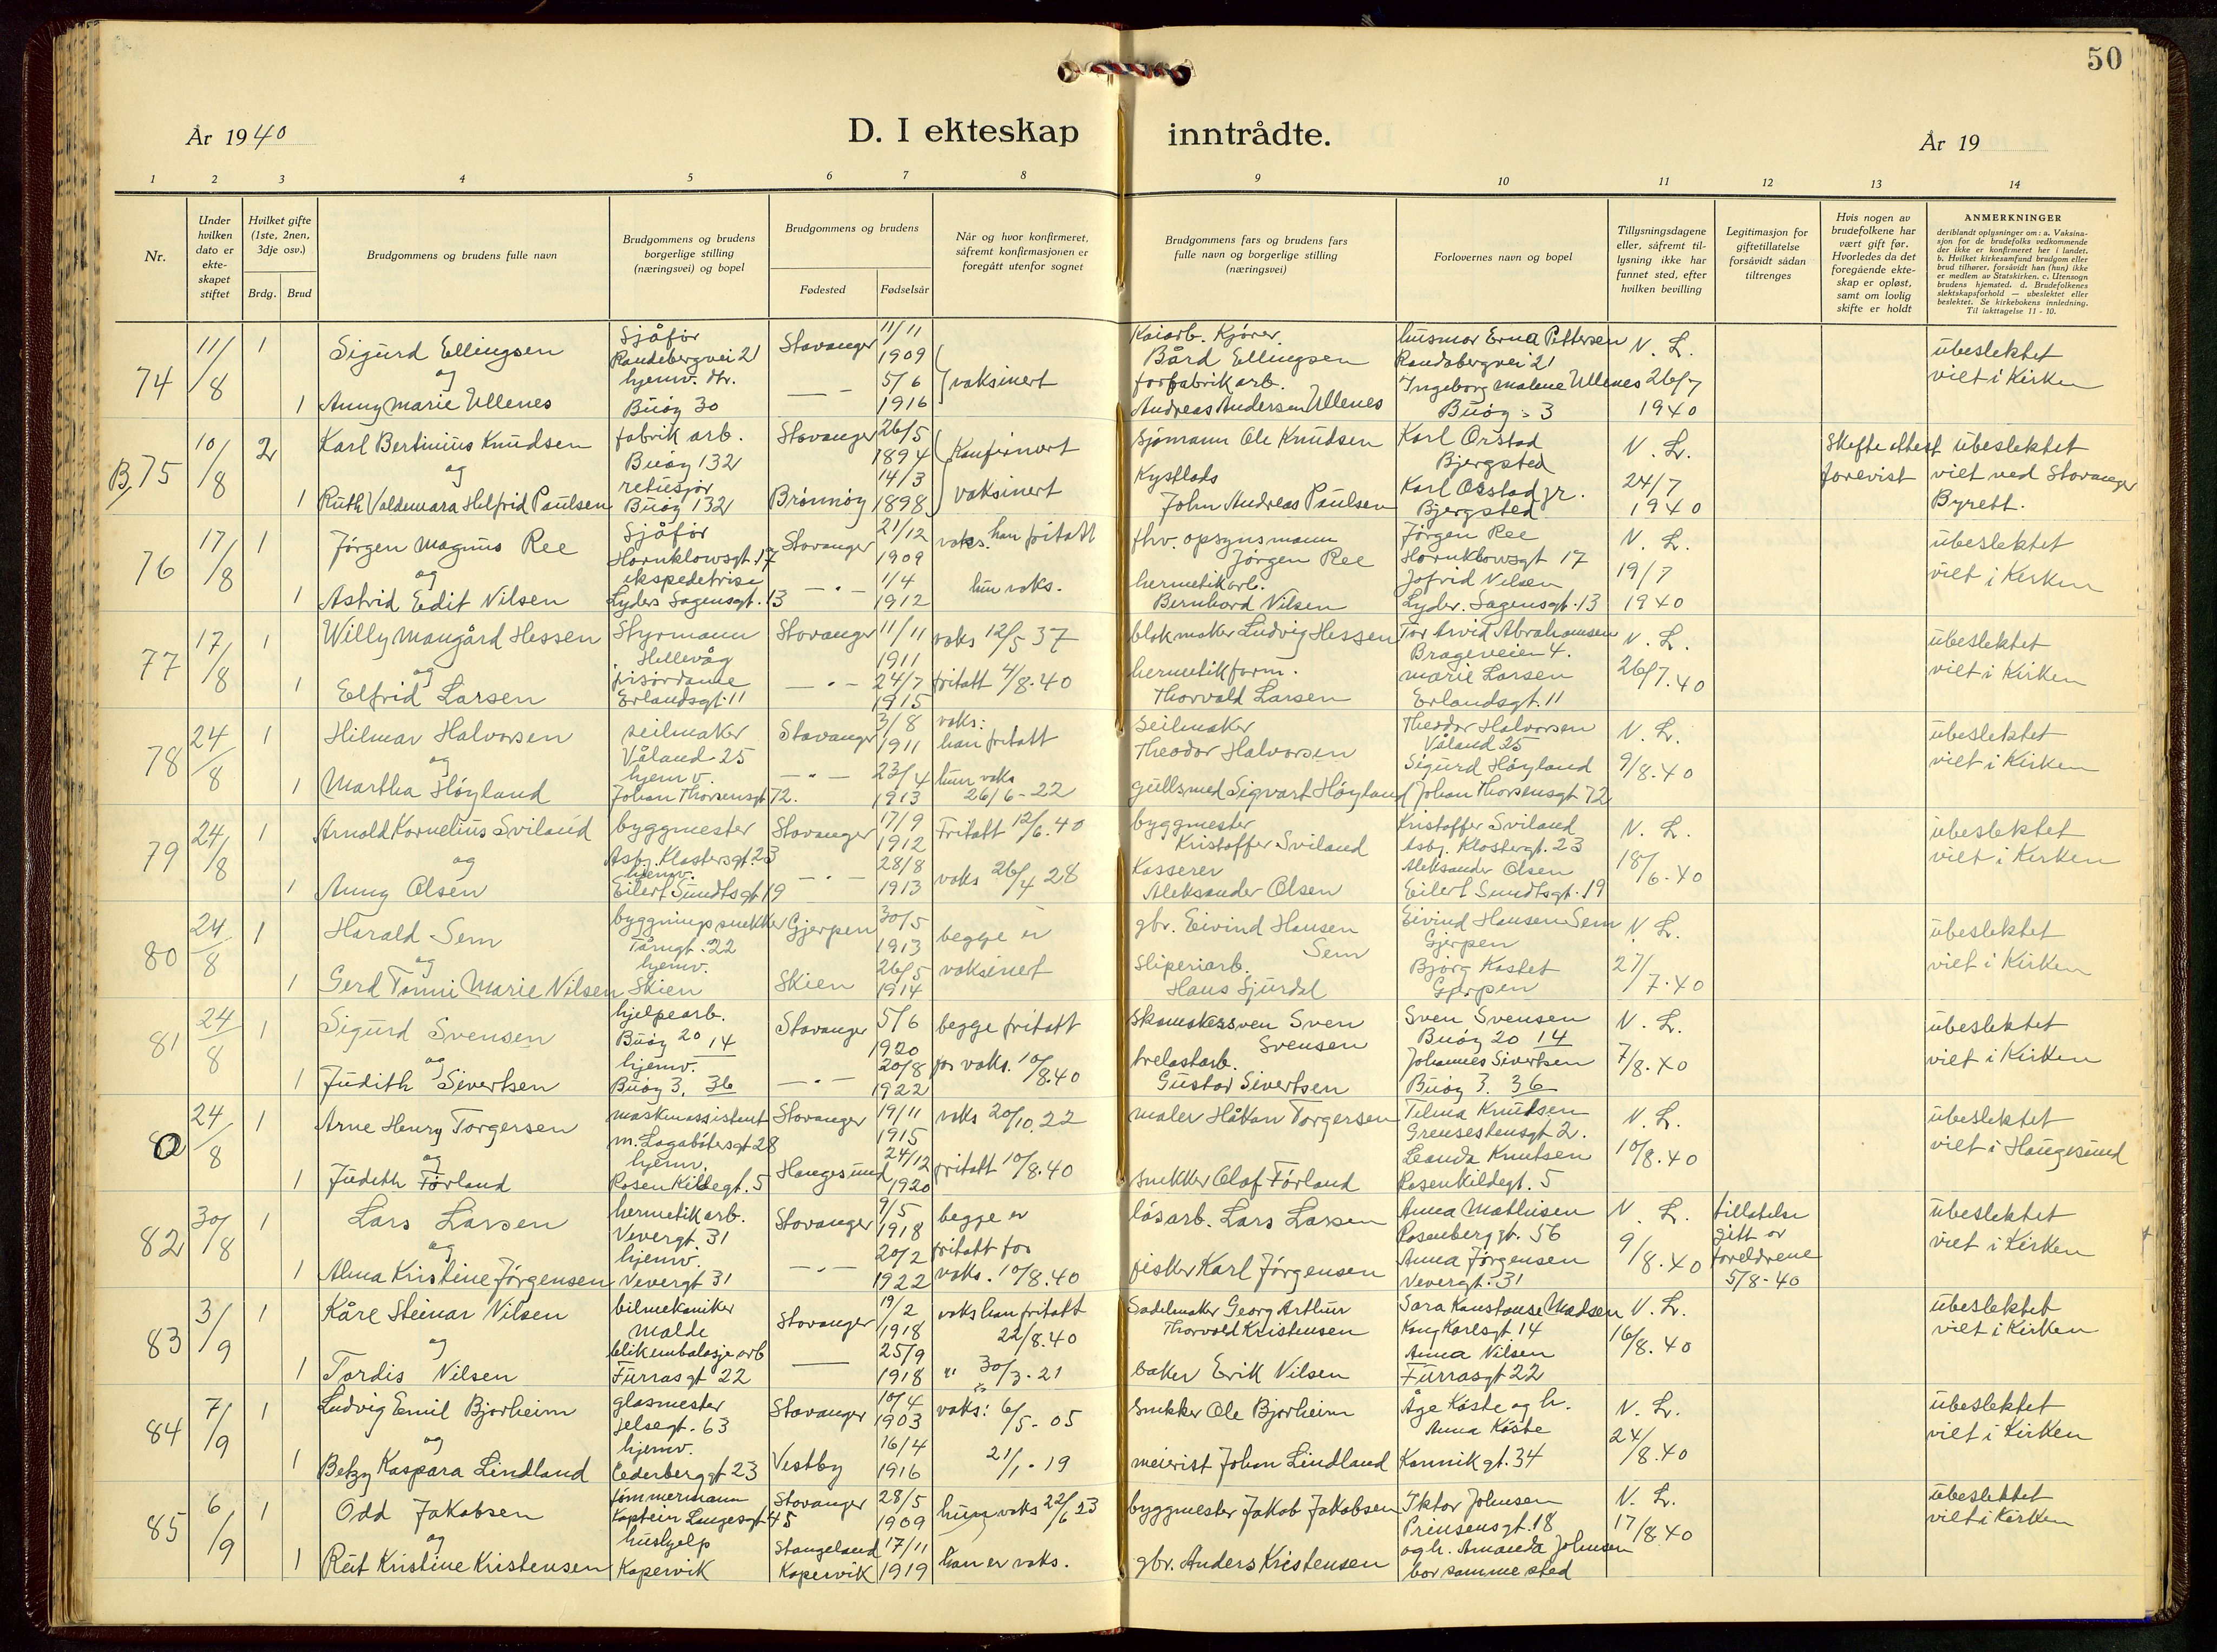 50
År 1940
D. I ekteskap inntrådte.
År 19
1 2 3 4 5 6 7 8 9 10 11 12 13 14
Nr.
Under hvilken dato er ekte-skapet stiftet
Hvilket gifte (1ste, 2nen, 3dje osv.)
Brdg. Brud
Brudgommens og brudens fulle navn
Brudgommens og brudens borgerlige stilling (næringsvei) og bopel
Brudgommens og brudens
Fødested Fødselsår
Når og hvor konfirmeret, såfremt konfirmasjonen er foregått utenfor sognet
Brudgommens fars og brudens fars fulle navn og borgerlige stilling (næringsvei)
Forlovernes navn og bopel
Tillysningsdagene eller, såfremt til-lysning ikke har funnet sted, efter hvilken bevilling
Legitimasjon for giftetillatelse forsåvidt sådan tiltrenges
Hvis nogen av brudefolkene har vært gift før. Hvorledes da det foregående ekte-skap er opløst, samt om lovlig skifte er holdt
ANMERKNINGER
deriblandt oplysninger om: a. Vaksina-sjon for de brudefolks vedkommende der ikke er konfirmeret her i landet. b. Hvilket kirkesamfund brudgom eller brud tilhører, forsåvidt han (hun) ikke er medlem av Statskirken. c. Utensogn brudens hjemsted. d. Brudefolkenes slektskapsforhold — ubeslektet eller beslektet. Se kirkebokens innledning. Til iakttagelse 11 - 10.
74 11/8 1 Sigurd Ellingsen Sjåfør Randabergvei 21 Stavanger 11/11 1909
og
1 Anny Marie Ullenes hjemv. dtr. Buøy 30 — 5/6 1916 vaksinert
Kaiarb. Kjører. Bård Ellingsen
forfabrikarb. Andreas Andersen Ullenes
husmor Erna Pettersen Randabergvei 21
Ingeborg Malene Ullenes Buøy 3
N. L. 26/7 1940
ubeslektet viet i Kirken
B, 75 10/8 2 Karl Bertinius Knudsen fabrik arb. Buøy 132 Stavanger 26/5 1894 Konfirmert
og
1 Ruth Valdemara Helfrid Paulsen retusjør Buøy 132 Brønnøy 14/3 1898 vaksinert
Sjømann Ole Knudsen
Kystlods John Andreas Paulsen
Karl Orstad Bjergsted
Karl Orstad jr. Bjergsted
N. L. 24/7 1940
Skifteattest forevist
ubeslektet viet ved Stavanger Byrett.
76 17/8 1 Jørgen Magnus Ree Sjåfør Hornklowsgt. 17 Stavanger 21/12 1909 vaks. han fritatt
og
1 Astrid Edit Nilsen ekspedetrise Lyders Sagensgt. 13 — " — 1/4 1912 hun vaks.
fhv. opsynsmann Jørgen Ree
hermetikarb. Bernhard Nilsen
Jørgen Ree Hornklowsgt 17
Jofrid Nilsen Lyder. Sagensgt. 13
N. L. 19/7 1940
ubeslektet viet i Kirken
77 17/8 1 Willy Maugård Hessen Styrmann Hillevåg Stavanger 11/11 1911 vaks 12/5 37
og
1 Elfrid Larsen frisørdame Erlandsgt. 11 — " — 24/7 1915 fritatt 4/8.40
blokmaker Ludvig Hessen
hermetikform. Thorvald Larsen
Tor Arvid Abrahamsen Brageveien 4.
Marie Larsen Erlandsgt. 11
N. L. 26/7.40
ubeslektet viet i Kirken
78 24/8 1 Hilmar Halvorsen seilmaker Våland 25 Stavanger 3/8 1911 vaks: han fritatt
og
1 Martha Høyland hjemv. Johan Thorsensgt 72. — " — 23/4 1913 hun vaks 26/6 - 22
Seilmaker Theodor Halvorsen
gullsmed Sigvart Høyland
Theodor Halvorsen Våland 25
Sigurd Høyland Johan Thorsensgt 72
N. L. 9/8.40
ubeslektet viet i Kirken
79 24/8 1 Arnold Kornelius Sviland byggmester Asbj. Klostersgt. 23 Stavanger 17/9 1912 Fritatt 12/6.40
og
1 Anny Olsen hjemv. Eilert Sundtsgt 19 — " — 28/8 1913 vaks 26/4 28
byggmester Kristoffer Sviland
Kasserer Aleksander Olsen
Kristoffer Sviland Asbj. Klostergt. 23
Aleksander Olsen Eilert Sundtsgt. 19
N. L. 18/6.40
ubeslektet viet i Kirken
80 24/8 1 Harald Sem bygningssnekker Tårngt. 22 Gjerpen 30/5 1913 begge er
og
1 Gerd Tonni Marie Nilsen hjemv. Skien Skien 26/5 1914 vaksinet
gbr. Eivind Hansen Sem
Sliperiarb. Hans Sjurdal
Eivind Hansen Sem Gjerpen
Bjørg Kastet Gjerpen
N. L. 27/7.40
ubeslektet viet i Kirken
81 24/8 1 Sigurd Svensen hjelpearb. Buøy 20 14 Stavanger 5/6 1920 begge fritatt
og
1 Judith Sivertsen hjemv. Buøy 3. 36 — " — 20/8 1922 for vaks. 10/8.40
Skomakersven Sven Svensen
trelastarb. Gustav Sivertsen
Sven Svensen Buøy 20 14
Johannes Sivertsen Buøy 3. 36
N. L. 7/8.40
ubeslektet viet i Kirken
24/8 1 Arne Henry Torgersen maskinassistent M. Lagabøtersgt 28 Stavanger 19/11 1915 vaks 20/10.22
og
1 Judith Førland hjemv. Rosenkildegt. 5 Haugesund 24/12 1920 fritatt 10/8.40
maler Håkon Torgersen
Snekker Olaf Førland
Telma Knudsen Grensestensgt 2.
Leanda Knutsen Rosenkildegt. 5
N. L. 10/8.40
ubeslektet viet i Haugesund
82 30/8 1 Lars Larsen hermetikarb. Vevergt 31 Stavanger 9/5 1918 begge er
og
1 Alma Kristine Jørgensen hjemv. Vevergt 31 — " — 20/2 1922 fritatt for vaks. 10/8.40
løsarb. Lars Larsen
fisker Karl Jørgensen
Anna Mathisen Rosenberggt. 56
Anna Jørgensen Vevergt. 31
N. L. 9/8.40
tillatelse gitt av foreldrene 5/8-40
ubeslektet viet i Kirken
83 3/9 1 Kåre Steinar Nilsen bilmekaniker Malde Stavanger 19/2 1918 vaks han fritatt 22/8.40
og
1 Tordis Nilsen blikembalasje arb Furrasgt 22 — 25/9 1918 " 30/3.21
Sadelmaker Georg Arthur Thorvald Kristensen
baker Erik Nilsen
Sara Konstanse Madsen Kong Karlsgt. 14
Anna Nilsen Furrasgt 22
N. L. 16/8.40
ubeslektet viet i Kirken
84 7/9 1 Ludvig Emil Bjorheim glasmester Jelsegt. 63 Stavanger 10/4 1903 vaks: 6/5-05
og
1 Betzy Kaspara Lindland hjemv. Cederberggt 23 Vestby 16/4 1916 21/1-19
Snekker Ole Bjorheim
meierist Johan Lindland
Åge Køste og h. Anna Køste
Kannikgt. 34
N. L. 24/8.40
ubeslektet viet i Kirken
85 6/9 1 Odd Jakobsen tømmermann Kaptein Langesgt 45 Stavanger 28/5 1909 hun vaks 22/6 23
og
1 Rut Kristine Kristensen hushjelp Kopervik Stangeland Kopervik 17/11 1919 han er vaks.
byggmester Jakob Jakobsen
gbr. Anders Kristensen
Johnsen Prinsensgt. 18
og h. Amanda Johnsen bor samme sted
N. L. 17/8.40
ubeslektet viet i Kirken